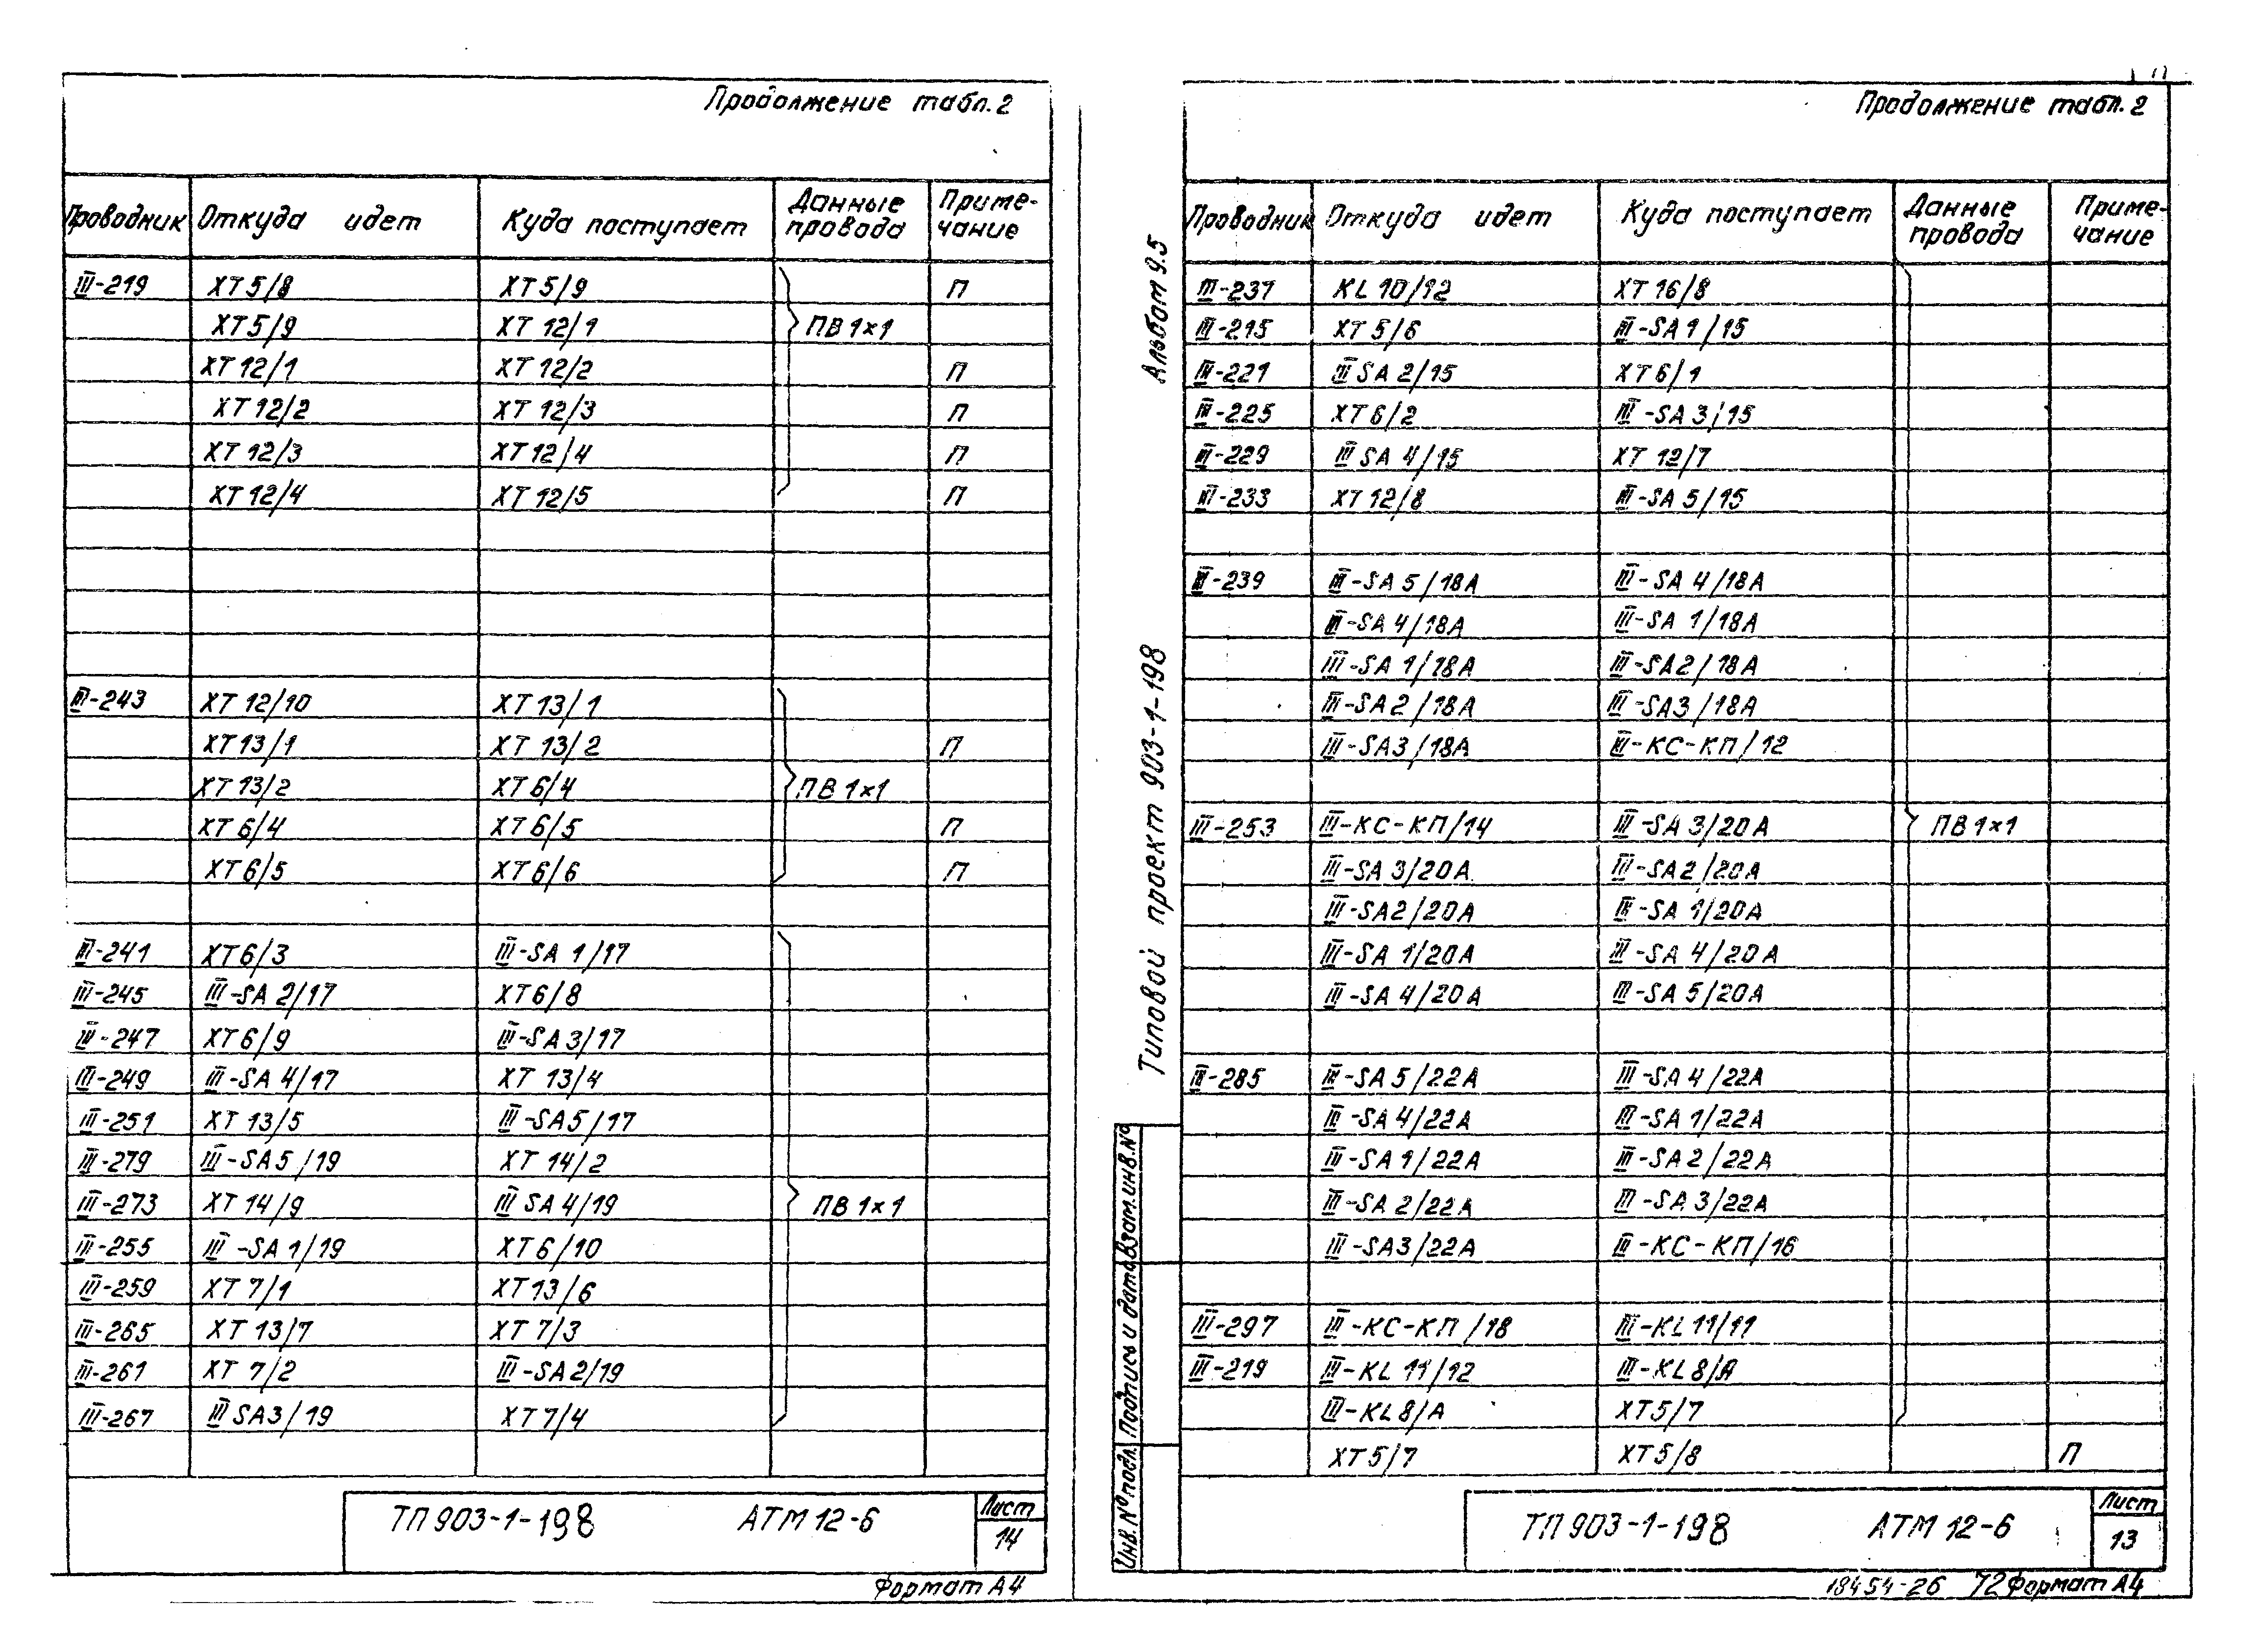 Продолжение табл. 2
Проводник Откуда идет Куда поступает Данные провода Приме-чание
III-219 XT5/8 XT5/9 П
XT5/9 XT12/1 ПВ1×1
XT12/1 XT12/2 П
XT12/2 XT12/3 П
XT12/3 XT12/4 П
XT12/4 XT12/5 П
III-243 XT12/10 XT13/1
XT13/1 XT13/2 П
XT13/2 XT6/4 ПВ1×1
XT6/4 XT6/5 П
XT6/5 XT6/6 П
III-241 XT6/3 III-SA1/17
III-245 III-SA2/17 XT6/8
III-247 XT6/9 III-SA3/17
III-249 III-SA4/17 XT13/4
III-251 XT13/5 III-SA5/17
III-279 III-SA5/19 XT14/2
III-273 XT14/9 III SA4/19 ПВ1×1
III-255 III-SA1/19 XT6/10
III-259 XT7/1 XT13/6
III-265 XT13/7 XT7/3
III-261 XT7/2 III-SA2/19
III-267 III SA3/19 XT7/4
ТП903-1-198 АТМ12-6 Лист
14
Формат А4
Альбом 9.5
Типовой проект 903-1-198
Инв.№подл. Подпись и дата Взам.инв.№
Продолжение табл. 2
Проводник Откуда идет Куда поступает Данные провода Приме-чание
III-237 KL10/12 XT16/8
III-215 XT5/6 III-SA1/15
III-221 III SA2/15 XT6/1
III-225 XT6/2 III-SA3/15
III-229 III SA4/15 XT12/7
III-233 XT12/8 III-SA5/15
III-239 III-SA5/18A III-SA4/18A
III-SA4/18A III-SA1/18A
III-SA1/18A III-SA2/18A
III-SA2/18A III-SA3/18A
III-SA3/18A III-КС-КП/12
III-253 III-КС-КП/14 III-SA3/20A ПВ1×1
III-SA3/20A III-SA2/20A
III-SA2/20A III-SA1/20A
III-SA1/20A III-SA4/20A
III-SA4/20A III-SA5/20A
III-285 III-SA5/22A III-SA4/22A
III-SA4/22A III-SA1/22A
III-SA1/22A III-SA2/22A
III-SA2/22A III-SA3/22A
III-SA3/22A III-КС-КП/16
III-297 III-КС-КП/18 III-KL11/11
III-219 III-KL11/12 III-KL8/A
III-KL8/A XT5/7
XT5/7 XT5/8 П
ТП903-1-198 АТМ12-6 Лист
13
18454-26 72 Формат А4